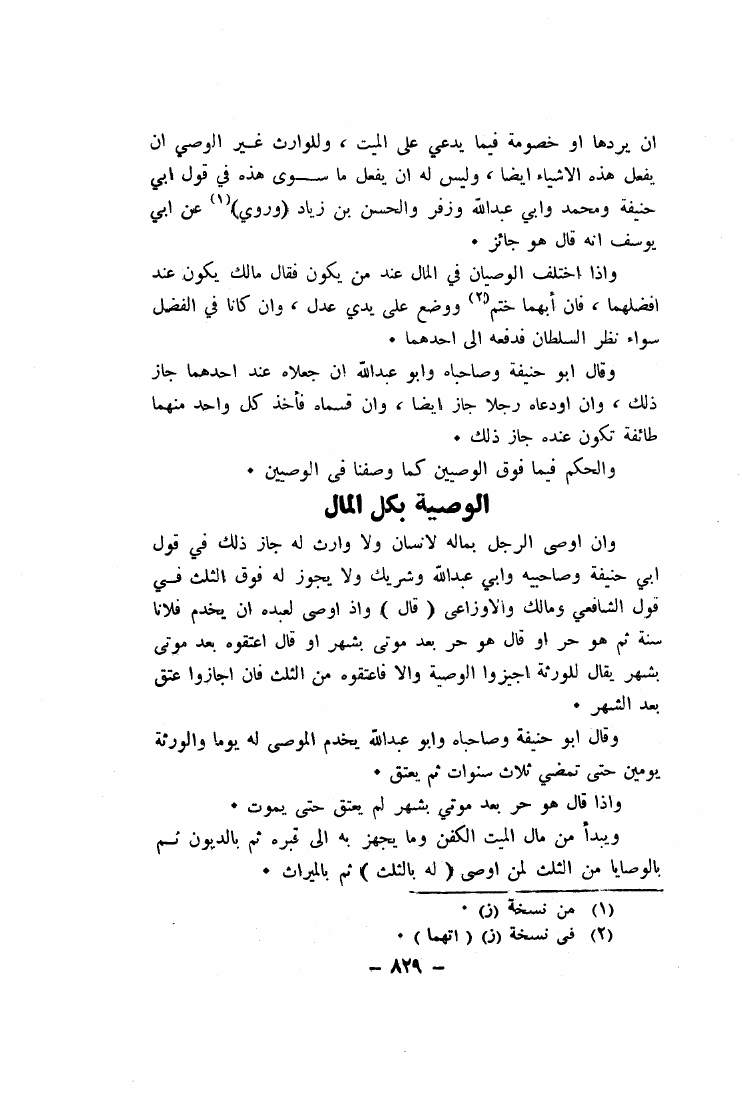 ان يردها او خصومة فيما يدعي على الميت ، وللوارث غير الوصي ان
يفعل هذه الاشياء ايضا ، وليس له ان يفعل ما سوى هذه في قول ابي
حنيفة ومحمد وابي عبدالله وزفر والحسن بن زياد (وروي)(١) عن ابي
يوسف انه قال هو جائز ٠
واذا اختلف الوصيان في المال عند من يكون فقال مالك يكون عند
افضلهما ، فان أبهما ختم(٢) ووضع على يدي عدل ، وان كانا في الفضل
سواء نظر السلطان فدفعه الى احدهما ٠
وقال ابو حنيفة وصاحباه وابو عبدالله ان جعلاه عند احدهما جاز
ذلك ، وان اودعاه رجلا جاز ايضا ، وان قسماه فأخذ كل واحد منهما
طائفة تكون عنده جاز ذلك ٠
والحكم فيما فوق الوصيين كما وصفنا في الوصيين ٠
الوصية بكل المال
وان اوصى الرجل بماله لانسان ولا وارث له جاز ذلك في قول
ابي حنيفة وصاحبيه وابي عبدالله وشريك ولا يجوز له فوق الثلث في
قول الشافعي ومالك والاوزاعى ( قال ) واذ اوصى لعبده ان يخدم فلانا
سنة ثم هو حر او قال هو حر بعد موتى بشهر او قال اعتقوه بعد موتى
بشهر يقال للورثة اجيزوا الوصية والا فاعتقوه من الثلث فان اجازوا عتق
بعد الشهر ٠
وقال ابو حنيفة وصاحباه وابو عبدالله يخدم الموصى له يوما والورثة
يومين حتى تمضي ثلاث سنوات ثم يعتق ٠
واذا قال هو حر بعد موتي بشهر لم يعتق حتى يموت ٠
ويبدأ من مال الميت الكفن وما يجهز به الى قبره ثم بالديون ثم
بالوصايا من الثلث لمن اوصى ( له بالثلث ) ثم بالميراث ٠
(١) من نسخة (ز) ٠
(٢) فى نسخة (ز) ( اتهما ) ٠
– ٨٢٩ –